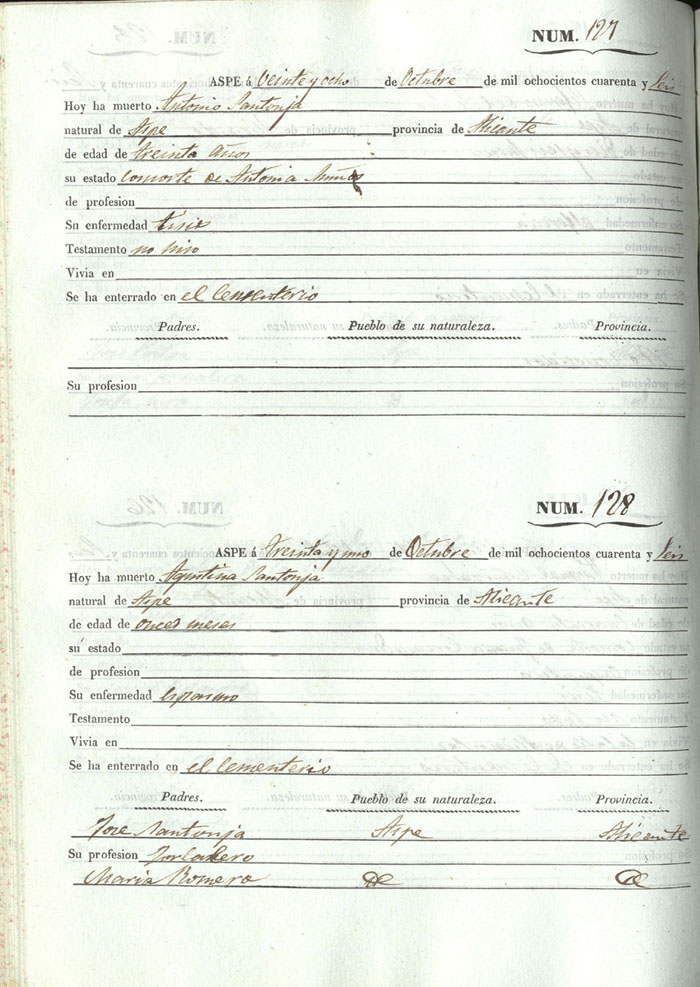 NUM. 127
ASPE á Veinte y ocho de Octubre de mil ochocientos cuarenta y seis
Hoy ha muerto Antonio Santonja
natural de Aspe provincia de Alicante
de edad de treinta años
su estado consorte de Antonia Muños
de profesion
Su enfermedad tisis
Testamento no hiso
Vivia en
Se ha enterrado en el Cementerio
Padres. Pueblo de su naturaleza. Provincia.
Su profesion
NUM. 128
ASPE á treinta y uno de Octubre de mil ochocientos cuarenta y seis
Hoy ha muerto Agustina Santonja
natural de Aspe provincia de Alicante
de edad de meses
su estado
de profesion
Su enfermedad
Testamento
Vivia en
Se ha enterrado en el Cementerio
Padres. Pueblo de su naturaleza. Provincia.
Jose Santonja Aspe Alicante
Su profesion Jornalero
Maria Romero